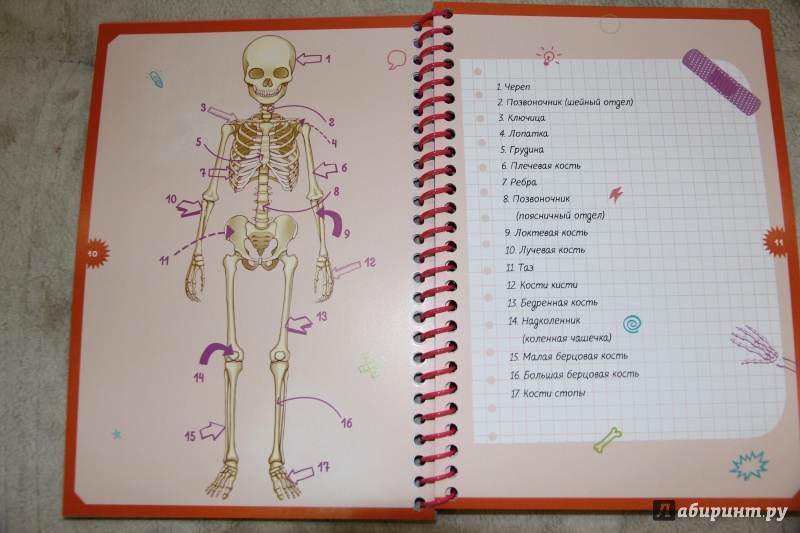 1
2
3
4
5
6
7
8
9
10
11
12
13
14
15
16
17
10
1. Череп
2. Позвоночник (шейный отдел)
3. Ключица
4. Лопатка
5. Грудина
6. Плечевая кость
7. Ребра
8. Позвоночник
(поясничный отдел)
9. Локтевая кость
10. Лучевая кость
11. Таз
12. Кости кисти
13. Бедренная кость
14. Надколенник
(коленная чашечка)
15. Малая берцовая кость
16. Большая берцовая кость
17. Кости стопы
11
Лабиринт.ру